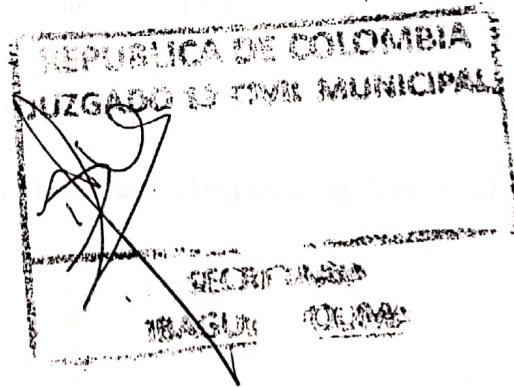 REPUBLICA DE COLOMBIA
JUZGADO CIVIL MUNICIPAL
SECRETARIA
IBAGUE TOLIMA